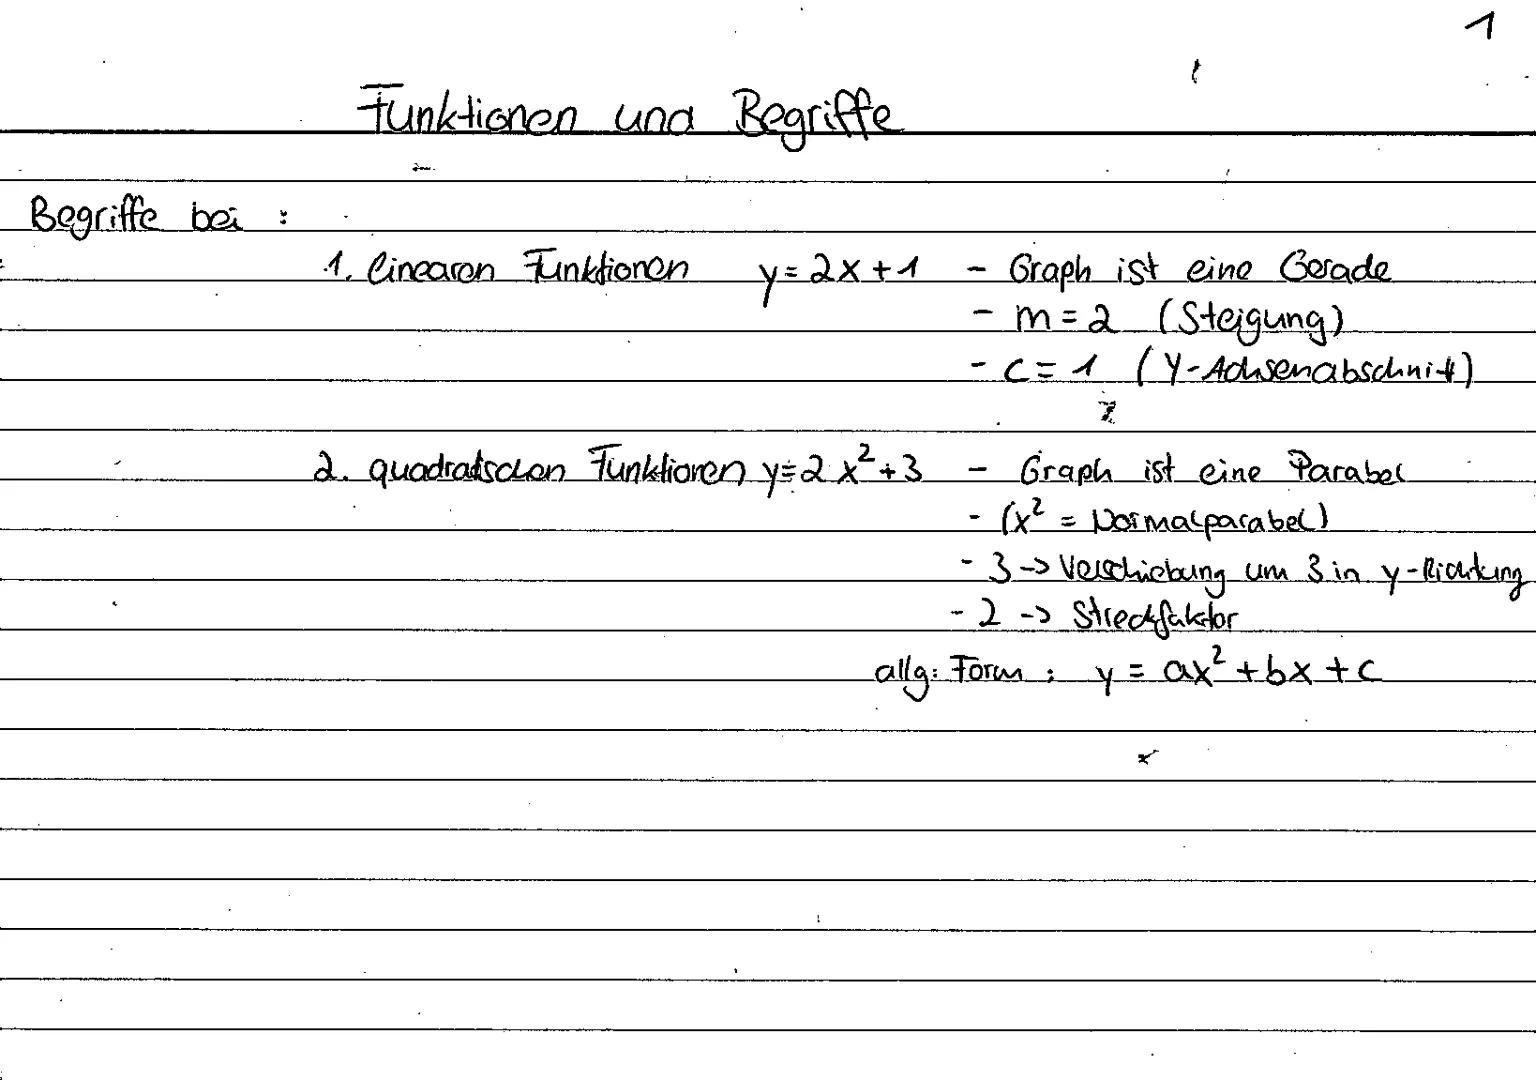 1
Funktionen und Begriffe
Begriffe bei :
1. linearen Funktionen y = 2x + 1 - Graph ist eine Gerade
- m = 2 (Steigung)
- c = 1 (Y-Achsenabschnitt)
2. quadratschen Funktionen y = 2x² + 3 - Graph ist eine Parabel
- (x² = Normalparabel)
- 3 -> Verschiebung um 3 in y-Richtung
- 2 -> Streckfaktor
allg. Form : y = ax² + bx + c